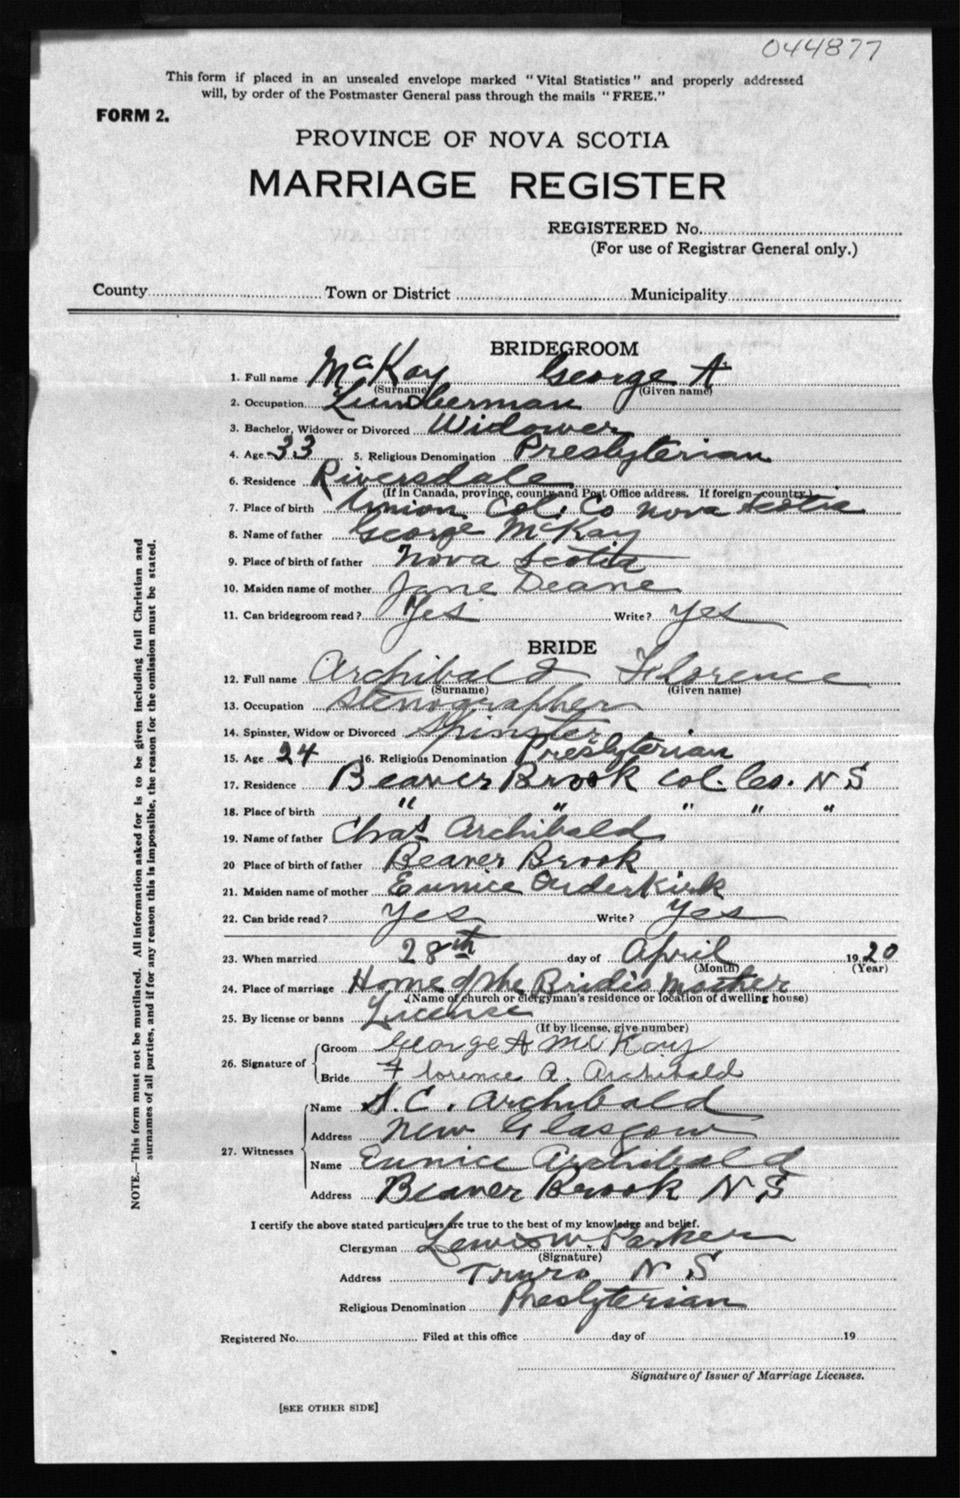 044877
This form if placed in an unsealed envelope marked "Vital Statistics" and properly addressed
will, by order of the Postmaster General pass through the mails "FREE."
FORM 2.
PROVINCE OF NOVA SCOTIA
MARRIAGE REGISTER
REGISTERED No.
(For use of Registrar General only.)
County Town or District Municipality
BRIDEGROOM
1. Full name McKay George A
(Surname) (Given name)
2. Occupation Lumberman
3. Bachelor, Widower or Divorced Widower
4. Age 33 5. Religious Denomination Presbyterian
6. Residence Riversdale
(If in Canada, province, county and Post Office address. If foreign country.)
7. Place of birth Union Col. Co Nova Scotia
8. Name of father George McKay
9. Place of birth of father Nova Scotia
10. Maiden name of mother Jane Deane
11. Can bridegroom read? Yes Write? Yes
BRIDE
12. Full name Archibald Florence
(Surname) (Given name)
13. Occupation Stenographer
14. Spinster, Widow or Divorced Spinster
15. Age 24 16. Religious Denomination Presbyterian
17. Residence Beaver Brook Col. Co. N S
18. Place of birth " " " " "
19. Name of father Chas Archibald
20 Place of birth of father Beaver Brook
21. Maiden name of mother Eunice Orderkirk
22. Can bride read? Yes Write? Yes
23. When married 28th day of April 1920
(Month) (Year)
24. Place of marriage Home of the Bride's Mother
(Name of church or clergyman's residence or location of dwelling house)
25. By license or banns License
(If by license, give number)
26. Signature of Groom George A McKay
Bride Florence A. Archibald
27. Witnesses Name S. C. Archibald
Address New Glasgow
Name Eunice Archibald
Address Beaver Brook N S
I certify the above stated particulars are true to the best of my knowledge and belief.
Clergyman Lewis W. Parker
(Signature)
Address Truro N S
Religious Denomination Presbyterian
Registered No. Filed at this office day of 19
Signature of Issuer of Marriage Licenses.
[SEE OTHER SIDE]
NOTE.—This form must not be mutilated. All information asked for is to be given including full Christian and
surnames of all parties, and if for any reason this is impossible, the reason for the omission must be stated.